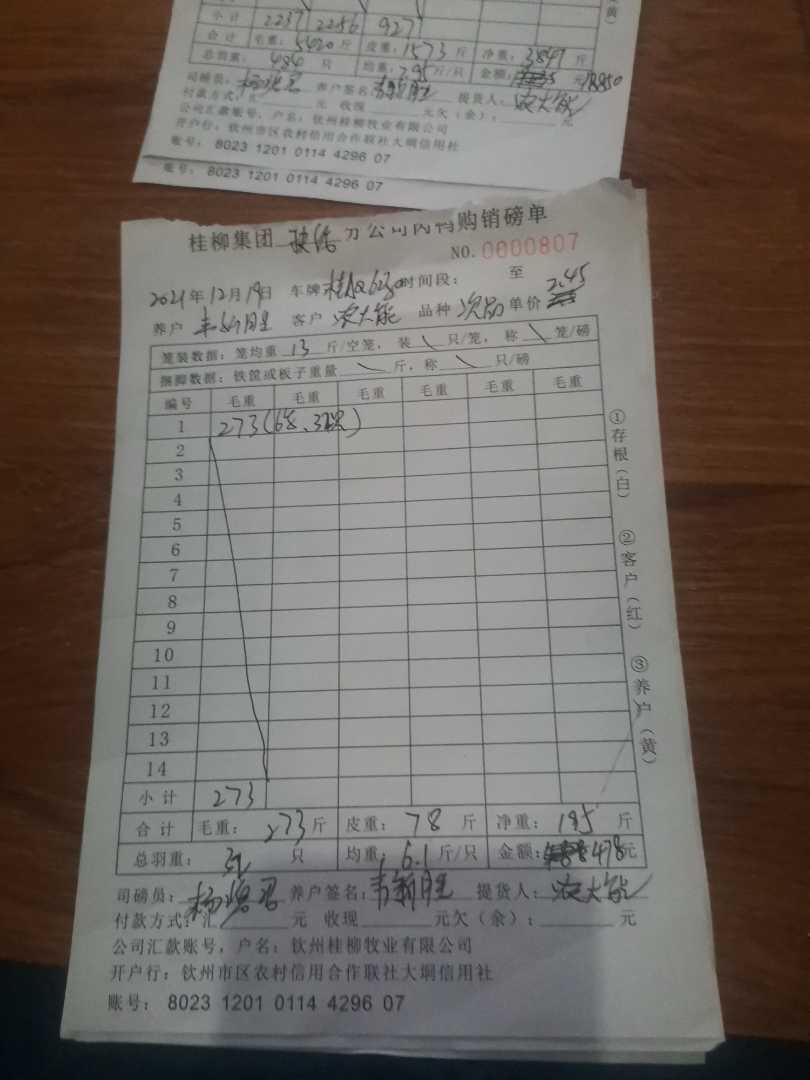 小计 2237 2256 927
合计 毛重: 5420 斤 皮重: 1573 斤 净重: 3847 斤
总羽重: 484 只 均重: 7.95 斤/只 金额: 元 18850
司磅员: 养户签名: 提货人: 农大能
付款方式: 汇 元 收现 元欠(余): 元
公司汇款账号,户名: 钦州桂柳牧业有限公司
开户行: 钦州市区农村信用合作联社大垌信用社
账号: 8023 1201 0114 4296 07
账号: 8023 1201 0114 4296 07
桂柳集团 分公司肉鸭购销磅单
NO.0000807
2021年12月19日 车牌 时间段: 至
养户 客户 农大能 品种 次品 单价 2.45
笼装数据: 笼均重 13 斤/空笼, 装 \ 只/笼, 称 \ 笼/磅
捆脚数据: 铁筐或板子重量 \ 斤, 称 \ 只/磅
编号 毛重 毛重 毛重 毛重 毛重 毛重
1 273(6笼、32只)
2
3
4
5
6
7
8
9
10
11
12
13
14
小计 273
合计 毛重: 273 斤 皮重: 78 斤 净重: 195 斤
总羽重: 32 只 均重: 6.1 斤/只 金额: 478元
司磅员: 养户签名: 提货人: 农大能
付款方式: 汇 元 收现 元欠(余): 元
公司汇款账号,户名: 钦州桂柳牧业有限公司
开户行: 钦州市区农村信用合作联社大垌信用社
账号: 8023 1201 0114 4296 07
①存根(白)
②客户(红)
③养户(黄)